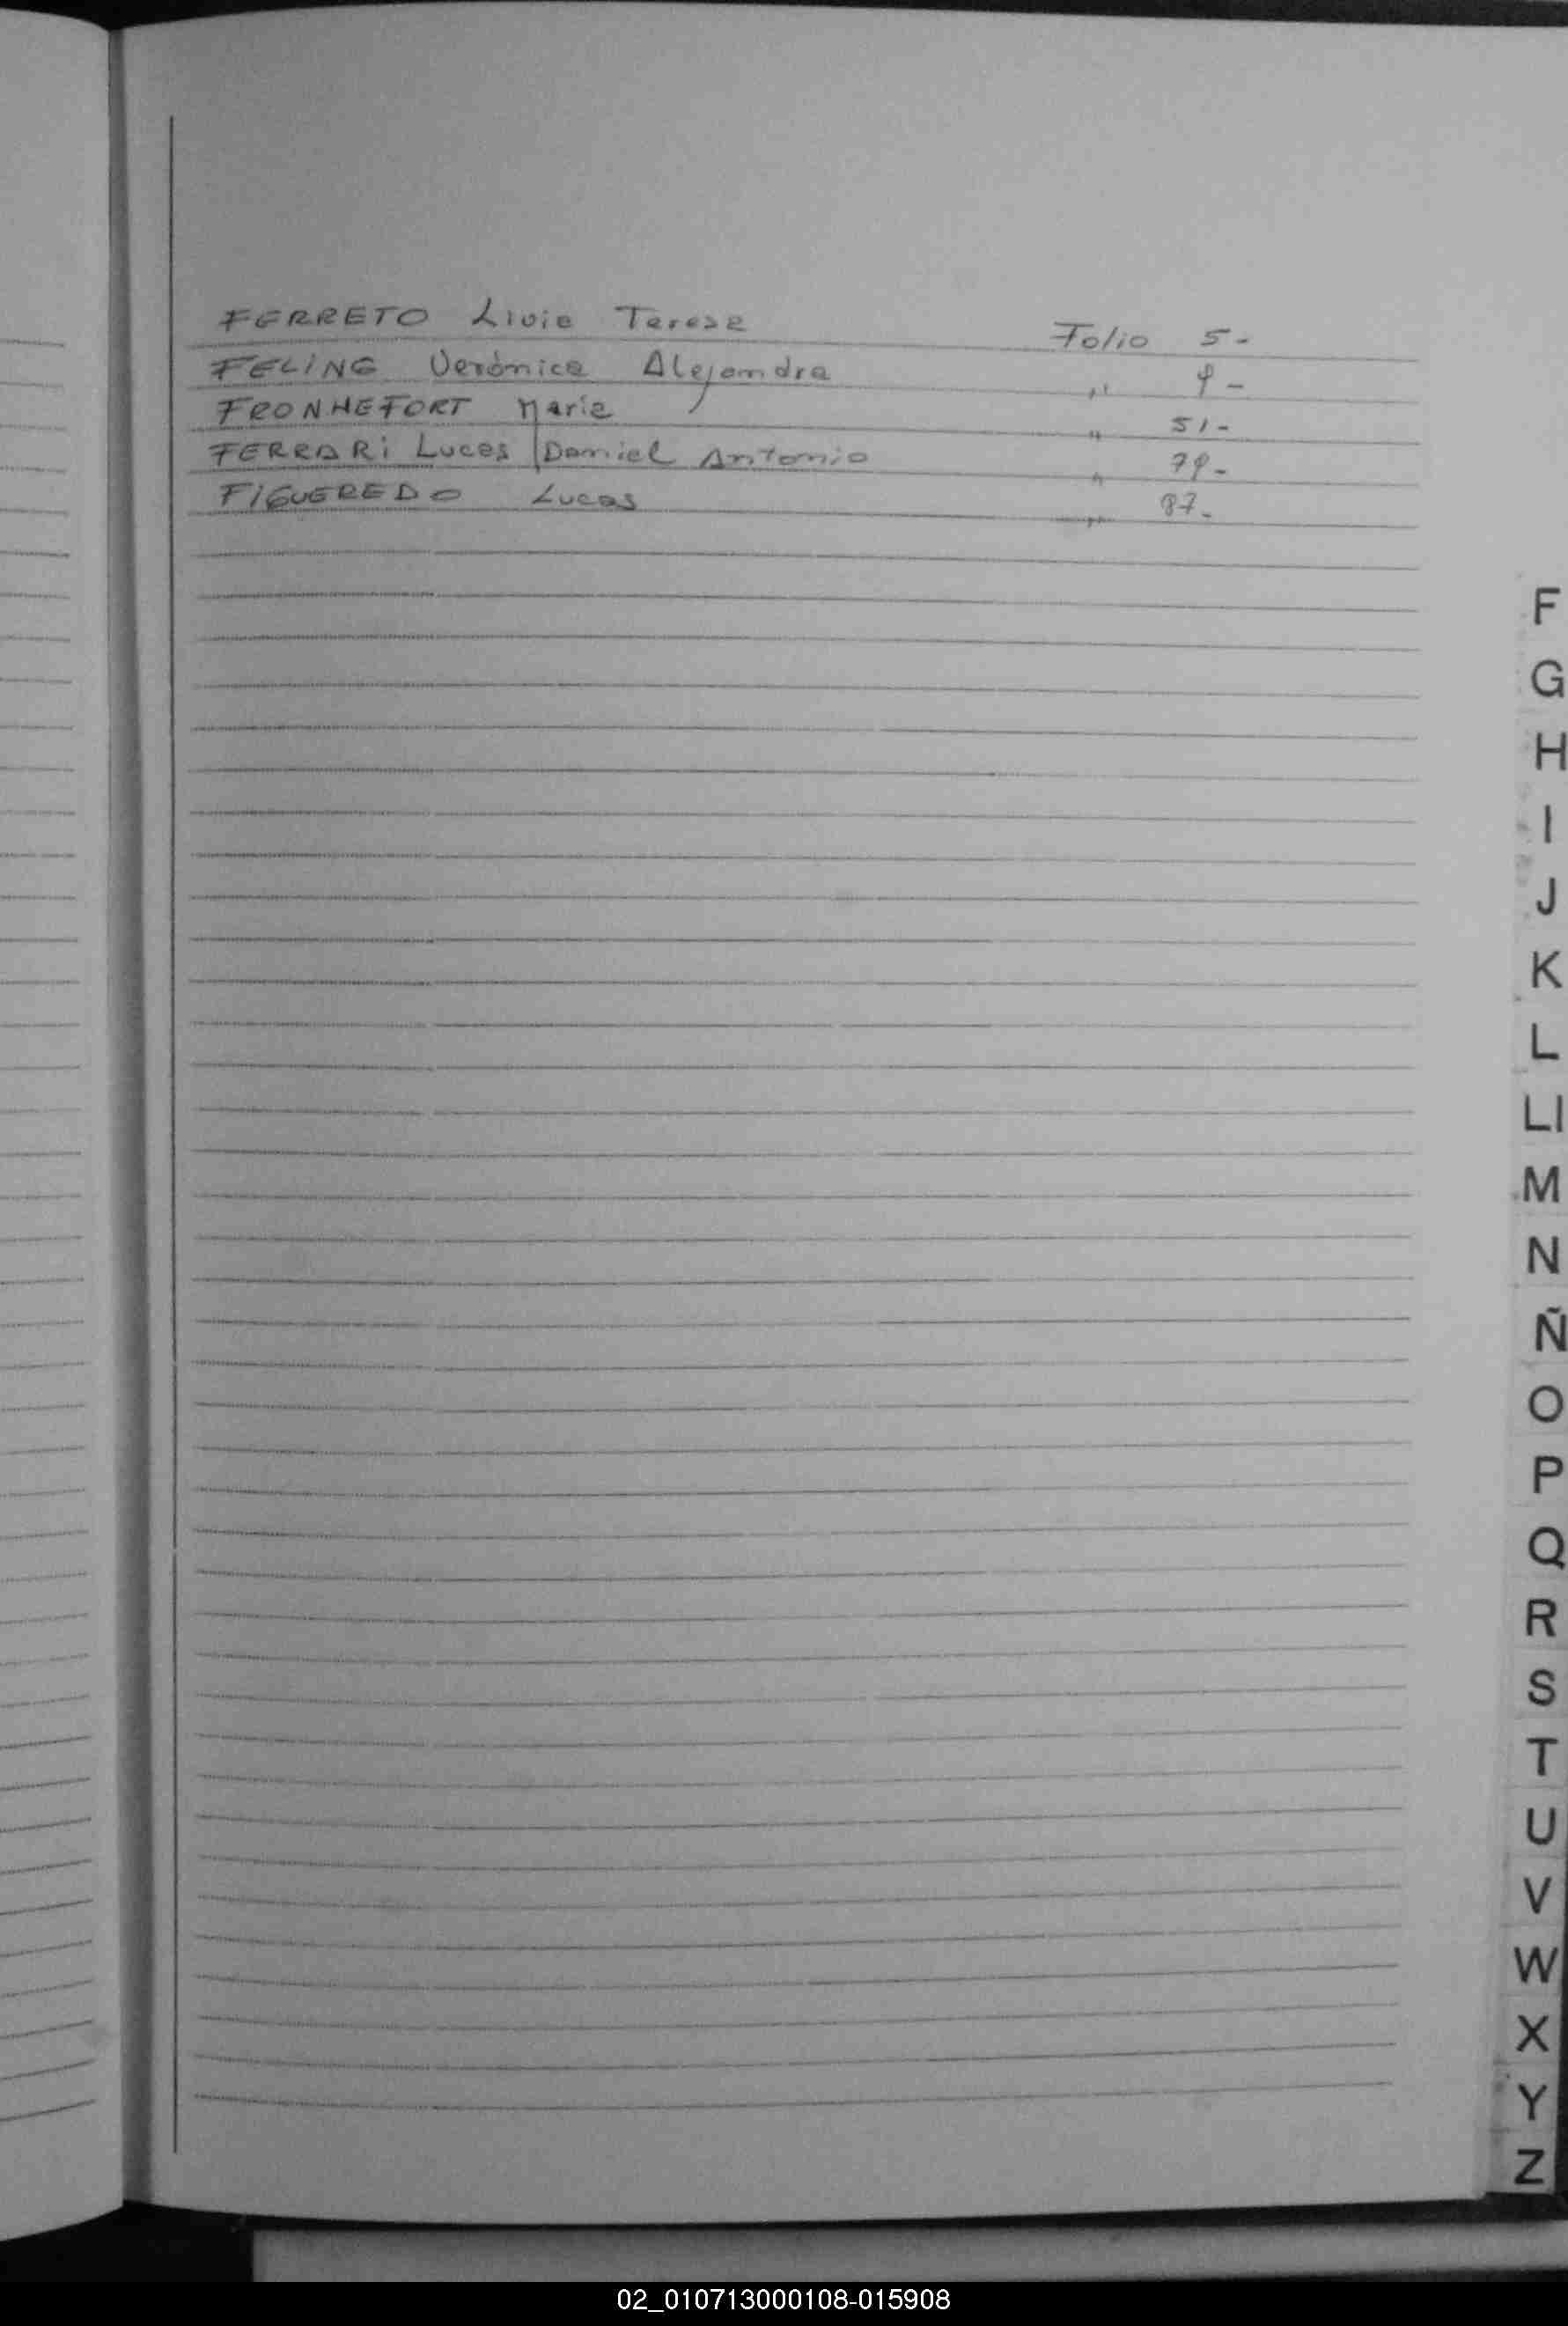 FERRETO Livia Teresa Folio 5-
FELING Verónica Alejandra " 9-
FRONHEFORT María " 51-
FERRARI Lucas Daniel Antonio " 79-
FIGUEREDO Lucas " 87-
F
G
H
I
J
K
L
Ll
M
N
Ñ
O
P
Q
R
S
T
U
V
W
X
Y
Z
02_010713000108-015908